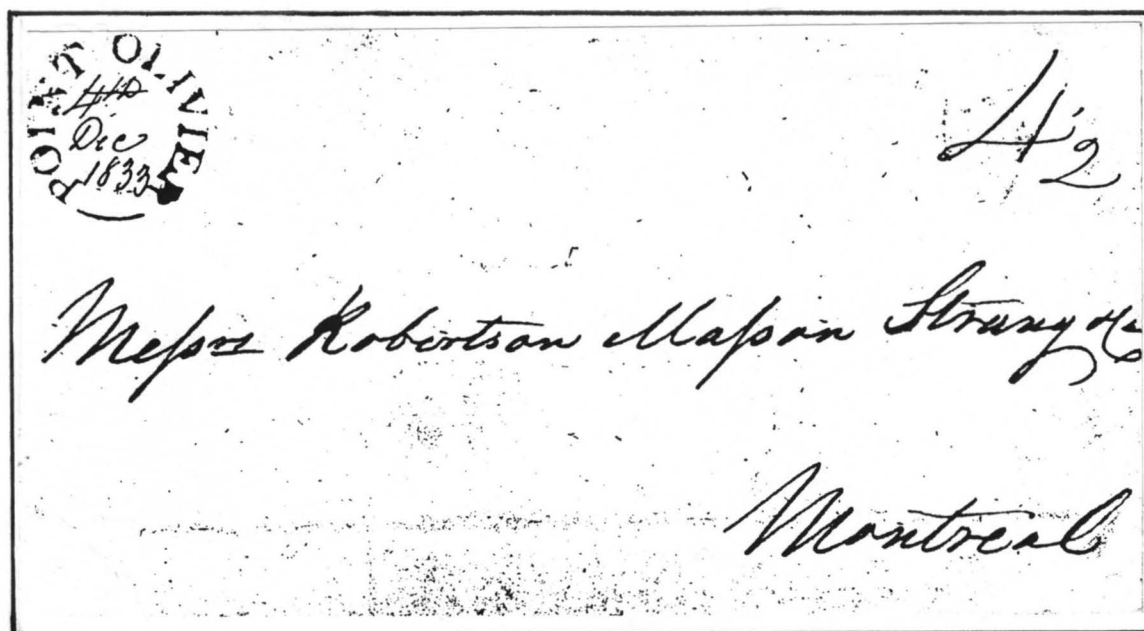 POINT OLIVIER
4th
Dec
1833
4½
Messrs Robertson Masson Strang & Co
Montreal